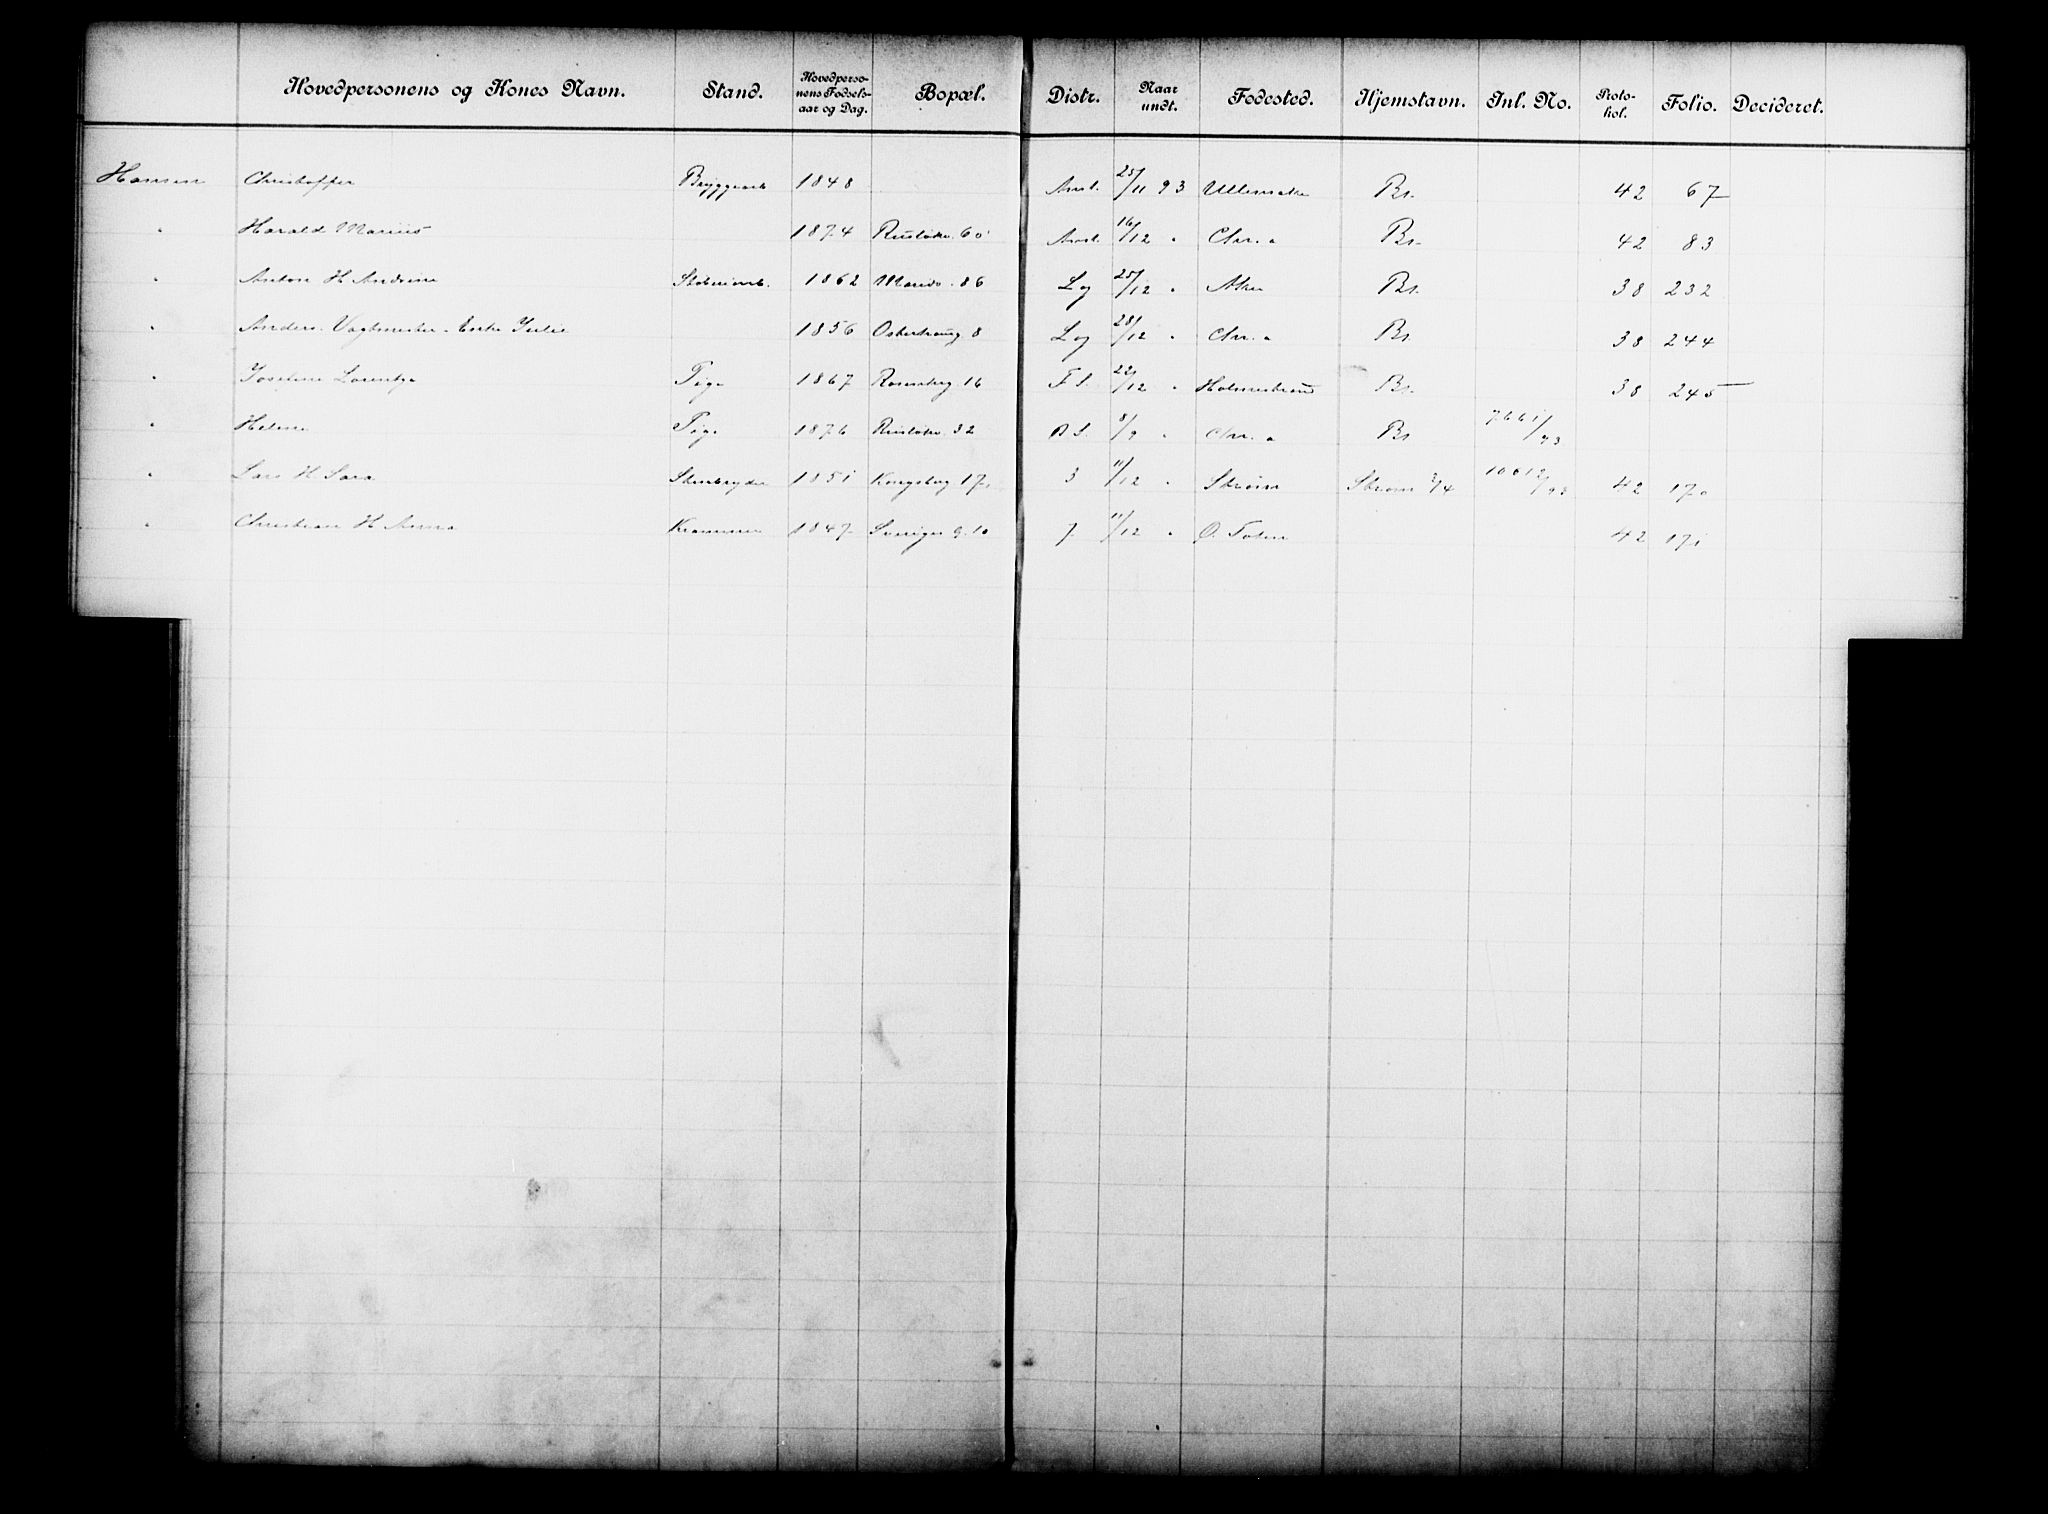 Hovedpersonens og Kones Navn. Stand. Hovedperso- nens Fødsels- aar og Dag. Bopæl. Distr. Naar undt. Fødested. Hjemstavn. Inl. No. Proto- kol. Folio. Decideret.
Hansen Christoffer Bryggearb 1848 Anst. 25/11 93 Ullensaker Bs. 42 67
" Harald Marius 1874 Ruseløk. 60 Anst. 16/12 " Chr.a Bs. 42 83
" Anton H Andrine Støberiarb. 1862 Marido. 86 Lg 25/12 " Aker Bs. 38 232
" Anders. Vagtmester. Enke Julie 1856 Osterhausg 8 Lg 28/12 " Chr.a Bs 38 244
" Josefine Lorentza Pige 1867 Rosenkrg. 16 F S. 22/12 " Holmestrand Bs. 38 245
" Helene Pige 1876 Ruseløk. 32 8/9 " Chr.a Bs 7661/93
" Lars H Sara Stenbryder 1851 Kongsbrg 17 3 11/12 " Strøm Strøm 3/4 10612/93 42 170
" Christian H Anna 1847 Sveriges g. 10 7 11/12 " Ø. Toten 42 171